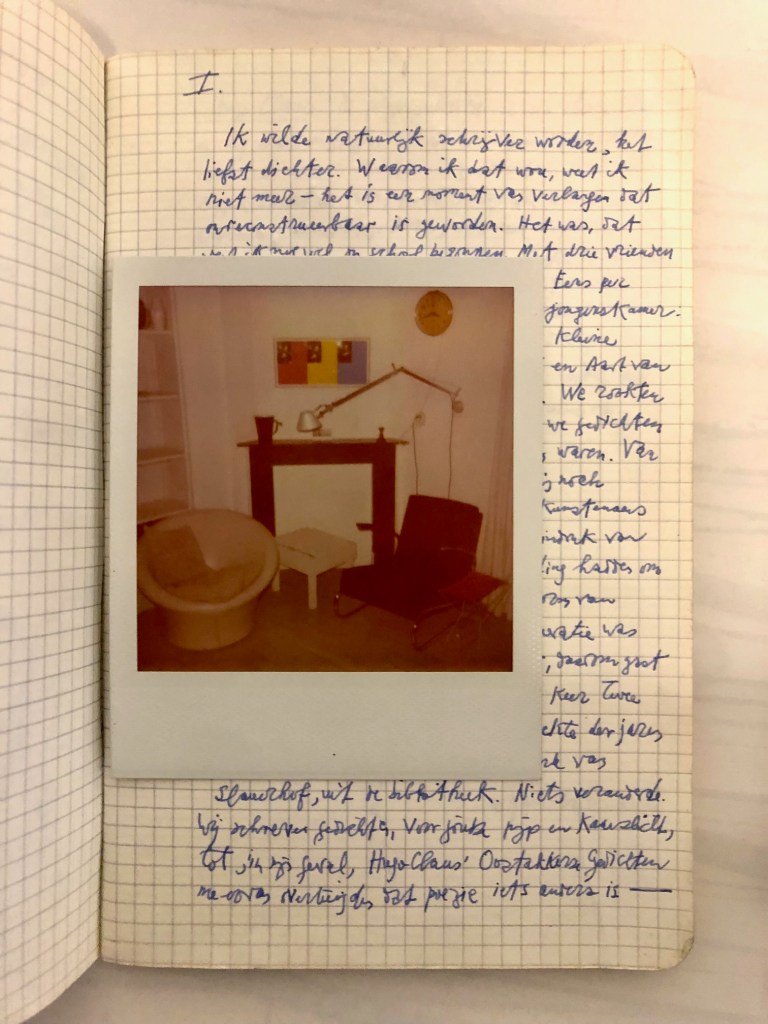 I.
Ik wilde natuurlijk schrijver worden, het
liefst dichter. Waarom ik dat wou, weet ik
niet meer – het is een moment van verlangen dat
onreconstrueerbaar is geworden. Het was, dat
op school begonnen. Met drie vrienden
Eens per
jongenskamer.
Kleine
en Aart van
. We rookten
we gedichten
, waren. Van
noch
kunstenaars
indruk van
ling hadden om
van
was
, daarom gaat
Keer Twee
der jaren
van
Slauerhof, uit de bibliotheek. Niets veranderde.
Wij schreven gedichten, voor jonks pijp en Kaarslicht,
tot, in mijn geval, Hugo Claus' Oostakkerse Gedichten
me ervan overtuigden dat poëzie iets anders is —